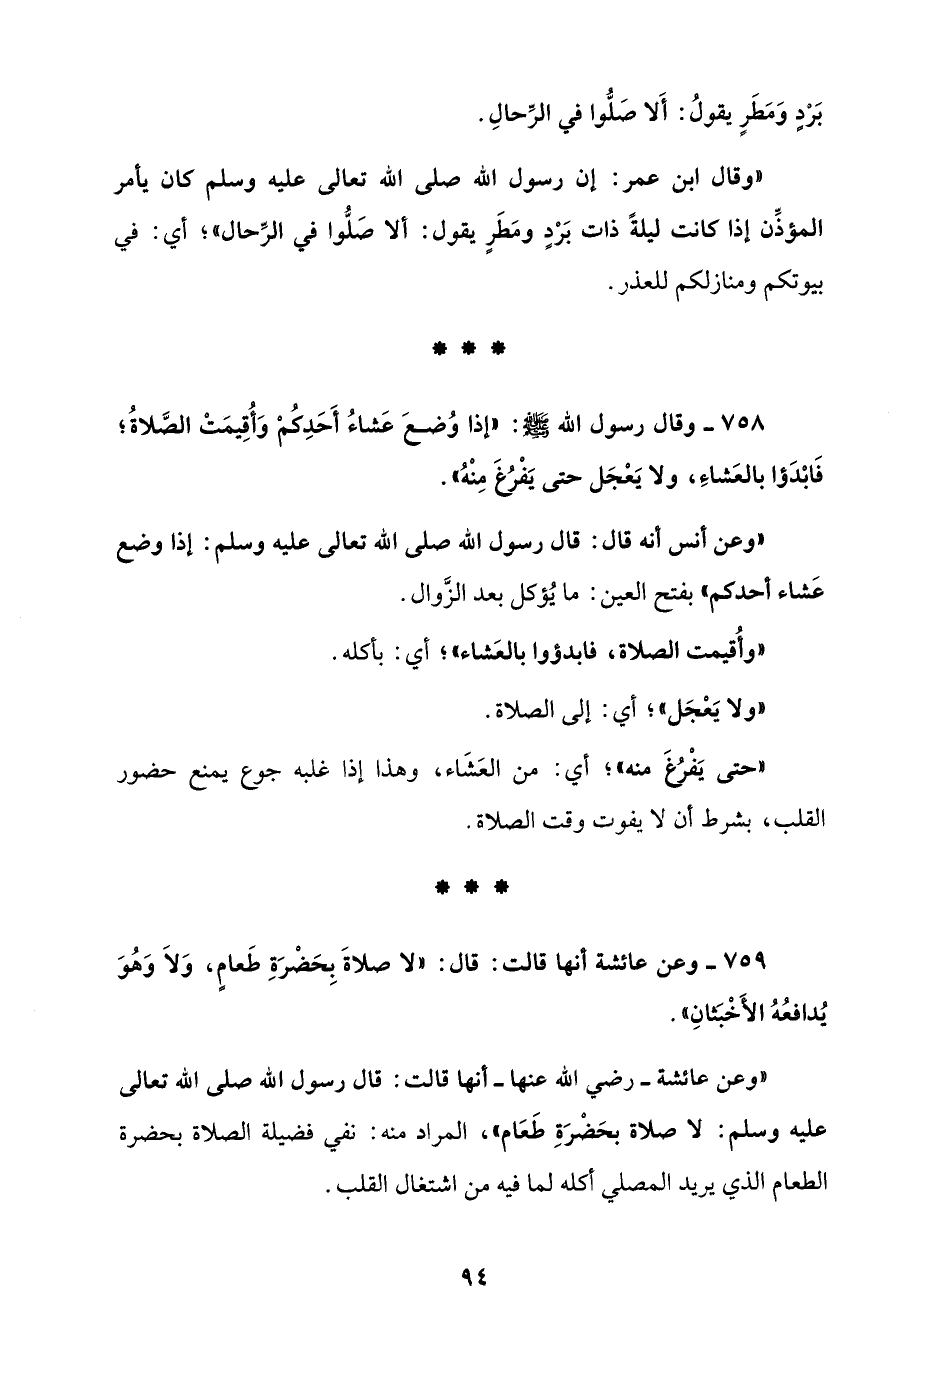 بَرْدٍ وَمَطَرٍ يقولُ: أَلا صَلُّوا في الرِّحالِ.
«وقال ابن عمر: إن رسول الله صلى الله تعالى عليه وسلم كان يأمر
المؤذِّن إذا كانت ليلةً ذات بَرْدٍ ومَطَرٍ يقول: ألا صَلُّوا في الرِّحال»؛ أي: في
بيوتكم ومنازلكم للعذر.
* * *
٧٥٨ ـ وقال رسول الله ﷺ: «إذا وُضعَ عَشاءُ أَحَدِكُمْ وَأُقِيمَتْ الصَّلاةُ؛
فَابْدَؤا بالعَشاءِ، ولا يَعْجَل حتى يَفْرُغَ مِنْهُ».
«وعن أنس أنه قال: قال رسول الله صلى الله تعالى عليه وسلم: إذا وضع
عَشاء أحدكم» بفتح العين: ما يُؤكل بعد الزَّوال.
«وأُقيمت الصلاة، فابدؤوا بالعَشاء»؛ أي: بأكله.
«ولا يَعْجَل»؛ أي: إلى الصلاة.
«حتى يَفْرُغَ منه»؛ أي: من العَشَاء، وهذا إذا غلبه جوع يمنع حضور
القلب، بشرط أن لا يفوت وقت الصلاة.
* * *
٧٥٩ ـ وعن عائشة أنها قالت: قال: «لا صلاةَ بِحَضْرَةِ طَعامٍ، وَلاَ وَهُوَ
يُدافعُهُ الأَخْبَثانِ».
«وعن عائشة ـ رضي الله عنها ـ أنها قالت: قال رسول الله صلى الله تعالى
عليه وسلم: لا صلاة بحَضْرَةِ طَعَام»، المراد منه: نفي فضيلة الصلاة بحضرة
الطعام الذي يريد المصلي أكله لما فيه من اشتغال القلب.
٩٤